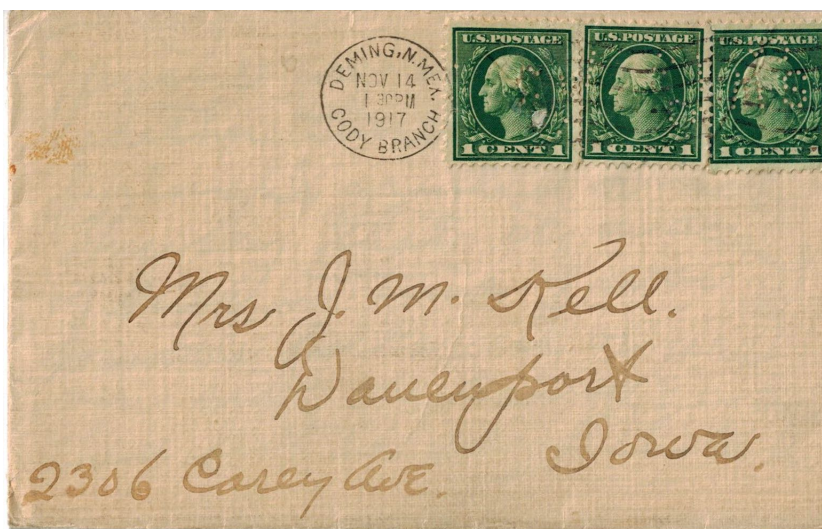 DEMING, N. MEX.
NOV 14
1 30 PM
1917
CODY BRANCH
U.S. POSTAGE
1 CENT 1
U.S. POSTAGE
1 CENT 1
U.S. POSTAGE
1 CENT 1
Mrs J. M. Kell.
Davenport
Iowa.
2306 Carey Ave.